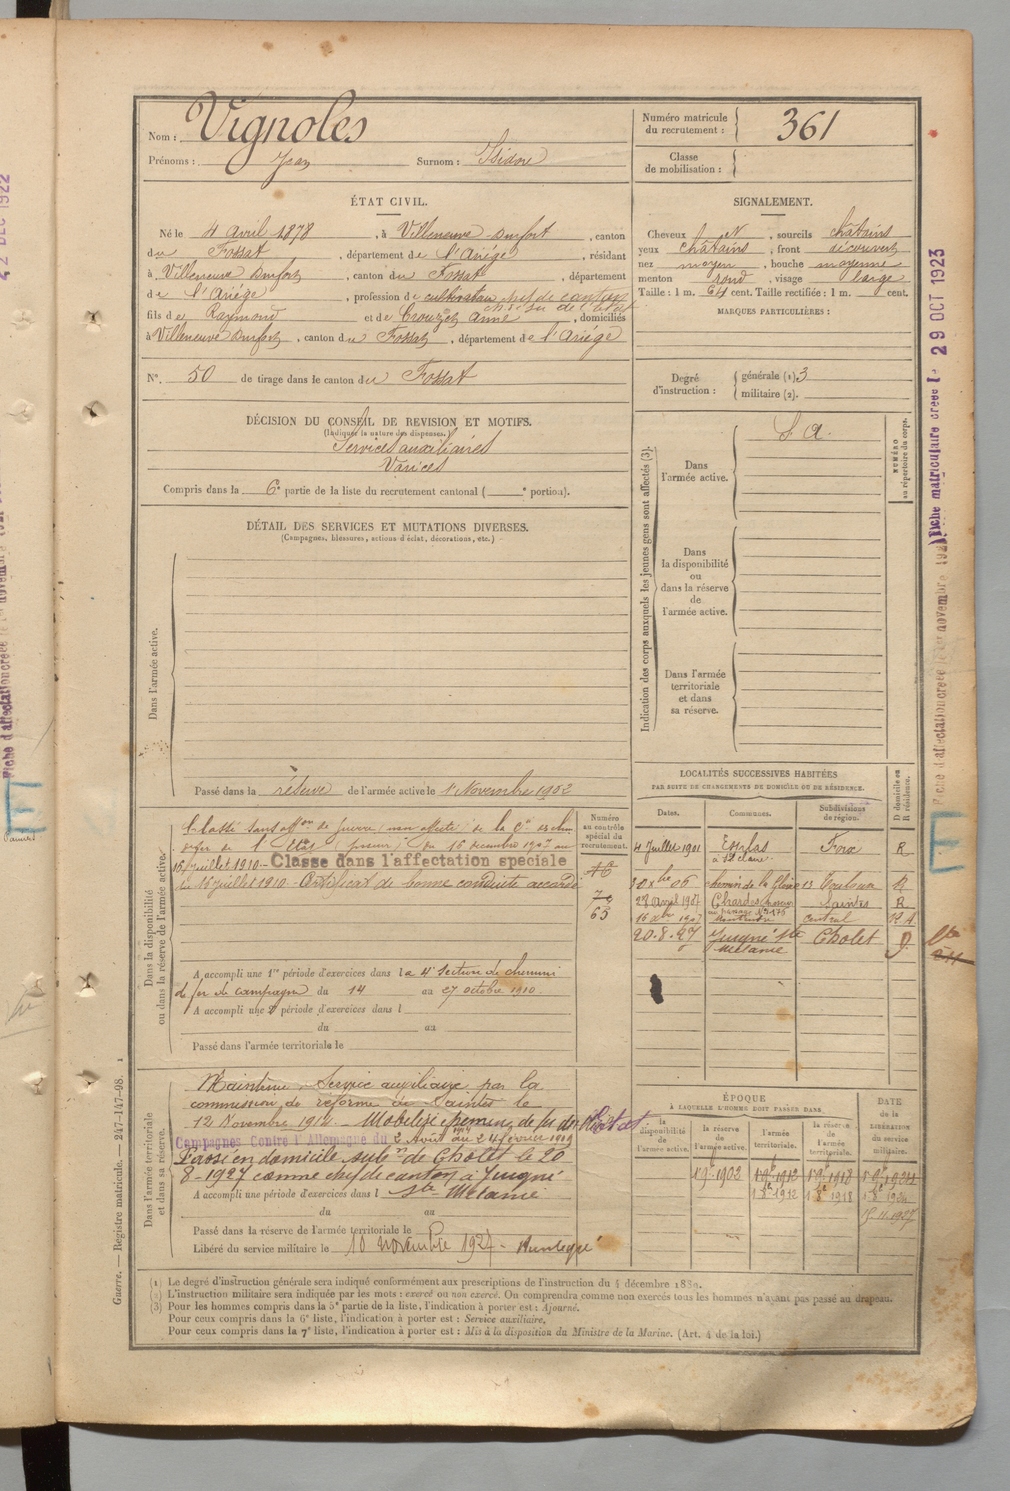 Nom : Vignoles
Prénoms : Jean Surnom : Isidore
Numéro matricule du recrutement : 361
Classe de mobilisation :
ÉTAT CIVIL.
Né le 4 avril 1878, à Villeneuve Durfort, canton
du Fossat, département de l'Ariège, résidant
à Villeneuve Durfort, canton du Fossat, département
de l'Ariège, profession de cultivateur chef de canton
fils de Raymond et de Crouzet Anne, domiciliés
à Villeneuve Durfort, canton du Fossat, département de l'Ariège
N°. 50 de tirage dans le canton du Fossat
SIGNALEMENT.
Cheveux N, sourcils châtains
yeux châtains, front découvert
nez moyen, bouche moyenne
menton rond, visage large
Taille : 1 m. 64 cent. Taille rectifiée : 1 m. cent.
MARQUES PARTICULIÈRES :
Degré d'instruction : générale (1) 3
militaire (2).
DÉCISION DU CONSEIL DE REVISION ET MOTIFS.
(Indiquer la nature des dispenses.)
Services auxiliaires
Varices
Compris dans la 6e partie de la liste du recrutement cantonal ( e portion).
DÉTAIL DES SERVICES ET MUTATIONS DIVERSES.
(Campagnes, blessures, actions d'éclat, décorations, etc.)
Dans l'armée active.
Passé dans la réserve de l'armée active le 1 Novembre 1902
Indication des corps auxquels les jeunes gens sont affectés (3).
Dans l'armée active.
S. A.
NUMÉRO au répertoire du corps.
Dans la disponibilité ou dans la réserve de l'armée active.
Dans l'armée territoriale et dans sa réserve.
Dans la disponibilité ou dans la réserve de l'armée active.
Classé sans affon de guerre, non affecté, de la Cie des chem
de fer de l'État (poseur) du 16 décembre 1907 au
16 juillet 1910. - Classé dans l'affectation spéciale
du 16 juillet 1910. - Certificat de bonne conduite accordé
A accompli une 1re période d'exercices dans la 4e Section de chemins
de fer de campagne du 14 au 27 octobre 1910.
A accompli une 2e période d'exercices dans l
du au
Passé dans l'armée territoriale le
Numéro au contrôle spécial du recrutement.
63
LOCALITÉS SUCCESSIVES HABITÉES
PAR SUITE DE CHANGEMENTS DE DOMICILE OU DE RÉSIDENCE.
Dates. Communes. Subdivisions de région. D domicile ou R résidence.
4 Juillet 1901 Foix R
10 Xbre 06 chemin de la Gloire 13 Toulouse R
28 avril 1907 Saintes R
16 Xbre 1907 central R A
20.8.27 Jusgné Ste Melaine Cholet D.
Dans l'armée territoriale et dans sa réserve.
Maintenu Service auxiliaire par la
commission de réforme de Saintes le
12 Novembre 1914. Mobilisé chemins de fer de l'État
Campagnes Contre l'Allemagne du 2 Août au 24 février 1919
Passé en domicile subon de Cholet le 20
8-1927 comme chef de canton à Jusgné
A accompli une période d'exercices dans l Ste Melaine
du au
Passé dans la réserve de l'armée territoriale le
Libéré du service militaire le 10 novembre 1927 -
ÉPOQUE
À LAQUELLE L'HOMME DOIT PASSER DANS
la disponibilité de l'armée active. la réserve de l'armée active. l'armée territoriale. la réserve de l'armée territoriale. DATE de la LIBÉRATION du service militaire.
1 9bre 1902 1 9bre 1912 1 9bre 1918 1 9bre 1924
1 8bre 1912 1 8bre 1918 1 8bre 1924
(1) Le degré d'instruction générale sera indiqué conformément aux prescriptions de l'instruction du 4 décembre 1889.
(2) L'instruction militaire sera indiquée par les mots : exercé ou non exercé. On comprendra comme non exercés tous les hommes n'ayant pas passé au drapeau.
(3) Pour les hommes compris dans la 5e partie de la liste, l'indication à porter est : Ajourné.
Pour ceux compris dans la 6e liste, l'indication à porter est : Service auxiliaire.
Pour ceux compris dans la 7e liste, l'indication à porter est : Mis à la disposition du Ministre de la Marine. (Art. 4 de la loi.)
Guerre. — Registre matricule. — 247-147-98.
Fiche matriculaire créée le 29 OCT 1923
Fiche d'affectation créée le 1er novembre
DEC 1922